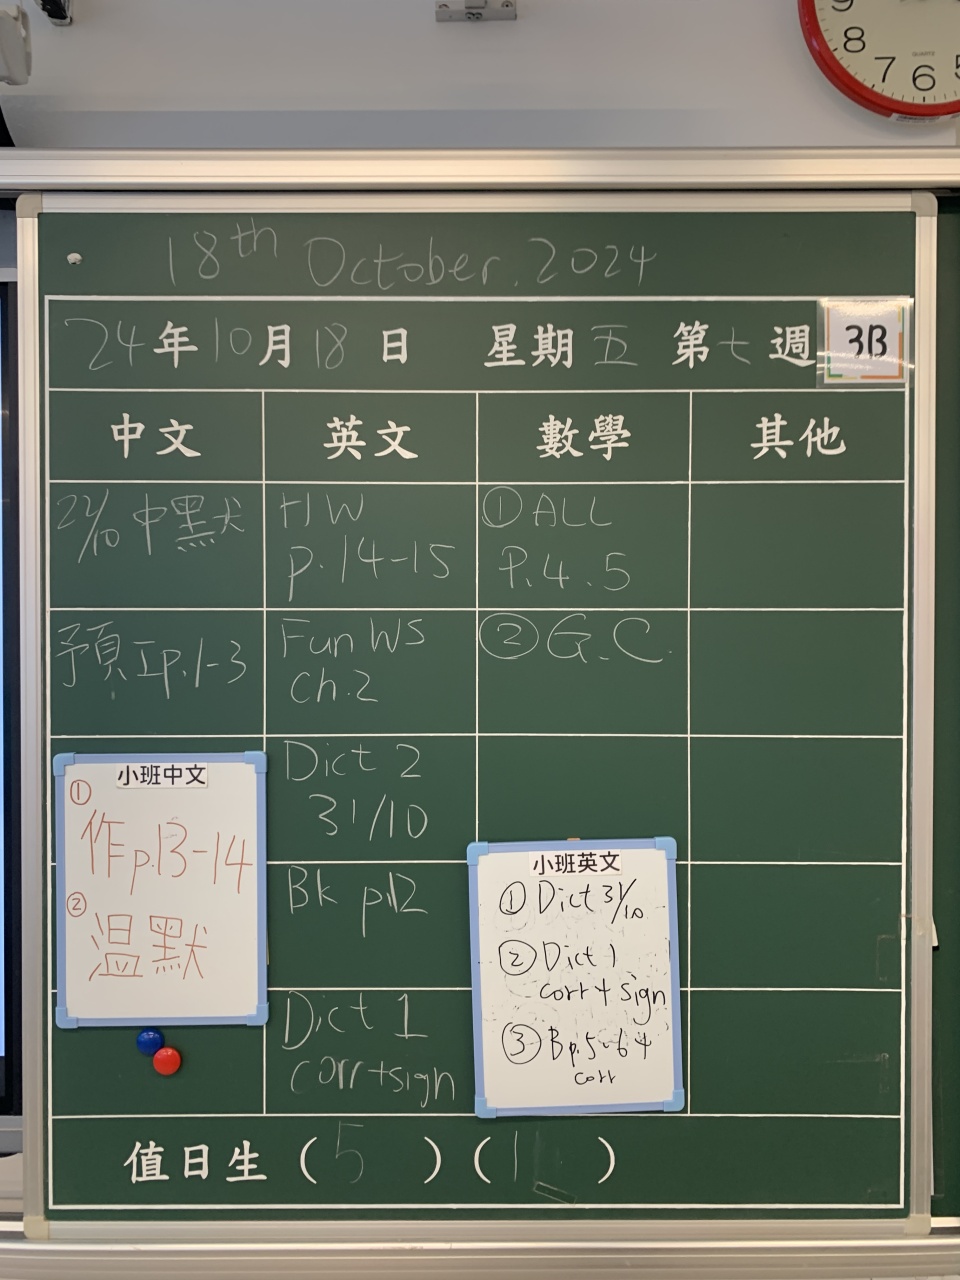 9
8
7
6
5
QUARTZ
18th October. 2024
24年10月18日 星期五 第七週
3B
中文
英文
數學
其他
21/10 中默
HW
p.14-15
①ALL
P.4.5
預工p.1-3
Fun WS
Ch.2
②G.C.
Dict 2
31/10
Bk p.12
Dict 1
corr+sign
小班中文
①
作p.13-14
②
溫默
小班英文
①Dict 31/10
②Dict 1
corr + sign
③Bp.5-6 +
corr
值日生(5)(1)